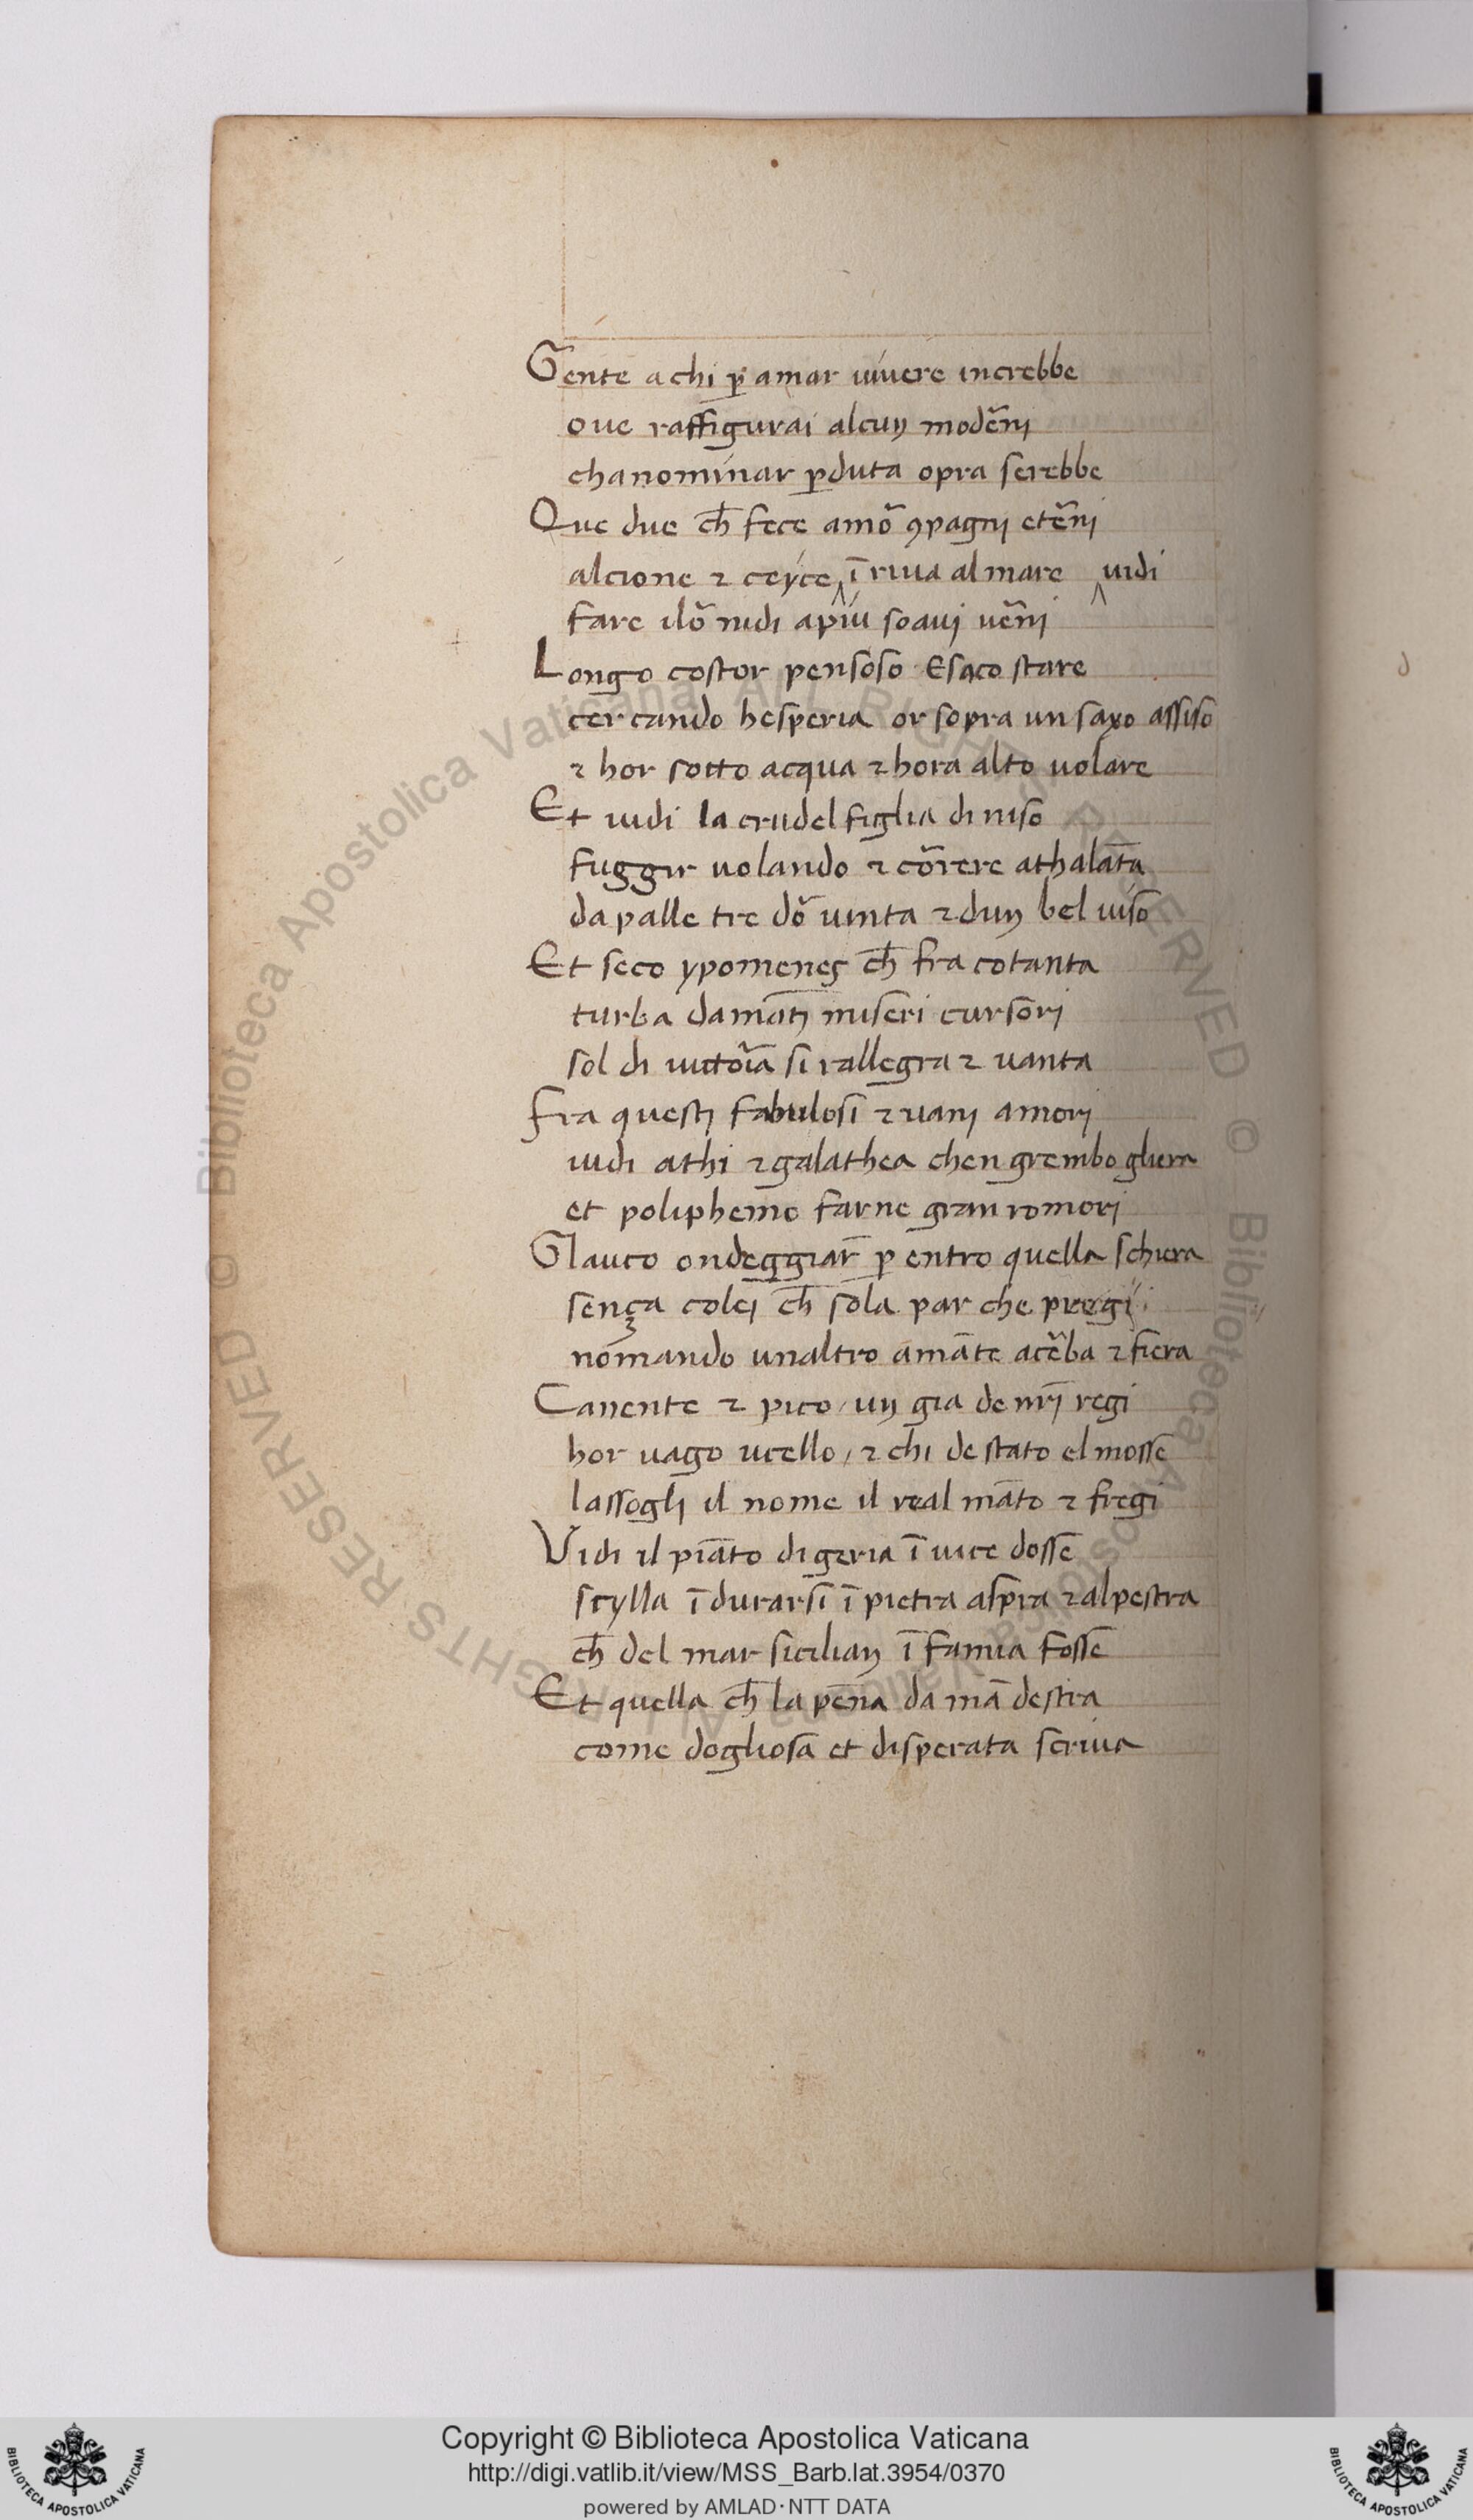 Gente a chi ꝑ amar uiuere increbbe
oue raffigurai alcuŋ modẽrnj
cha nominar ꝑduta opra serebbe
Que due cħ fece amõ ꝯpagnj etẽrnj
alcione ⁊ ceyce ī riua al mare uidi
fare i lõ nidi a piu soauj uẽrnj
Longo costor pensoso Esaco stare
cercando hesperia or sopra un saxo assiso
⁊ hor sotto acqua ⁊ hora alto uolare
Et uidi la crudel figlia di niso
fuggir uolando ⁊ cõrrere athalāta
da palle tre dõ uinta ⁊ duŋ bel uiso
Et seco ypomenes cħ fra cotanta
turba damātj miseri cursorj
sol di uictoĩa si rallegra ⁊ uanta
Fra questj fabulosi ⁊ uanj amorj
uidi athi ⁊ galathea chen grembo gliera
et poliphemo farne gran romorj
Glauco ondeggiar ꝑ entro quella schiera
sença colej cħ sola par che pregi
nomando unaltro amāte acẽba ⁊ fiera
Canente ⁊ pico / uŋ gia de nr̃j regi
hor uago ucello / ⁊ chi de stato el mosse
lassoglj il nome il real māto ⁊ fregi
Vidi il piāto di geria ī uice dosse
scylla ī durarsi ī pietra aspra ⁊ alpestra
cħ del mar siciliaŋ ī famia fosse
Et quella cħ la pēna da mā destra
come dogliosa et disperata scriua
© Biblioteca Apostolica Vaticana ALL RIGHTS RESERVED © Biblioteca Apostolica Vaticana ALL RIGHTS RESERVED
Copyright © Biblioteca Apostolica Vaticana
http://digi.vatlib.it/view/MSS_Barb.lat.3954/0370
powered by AMLAD·NTT DATA
BIBLIOTECA APOSTOLICA VATICANA
BIBLIOTECA APOSTOLICA VATICANA